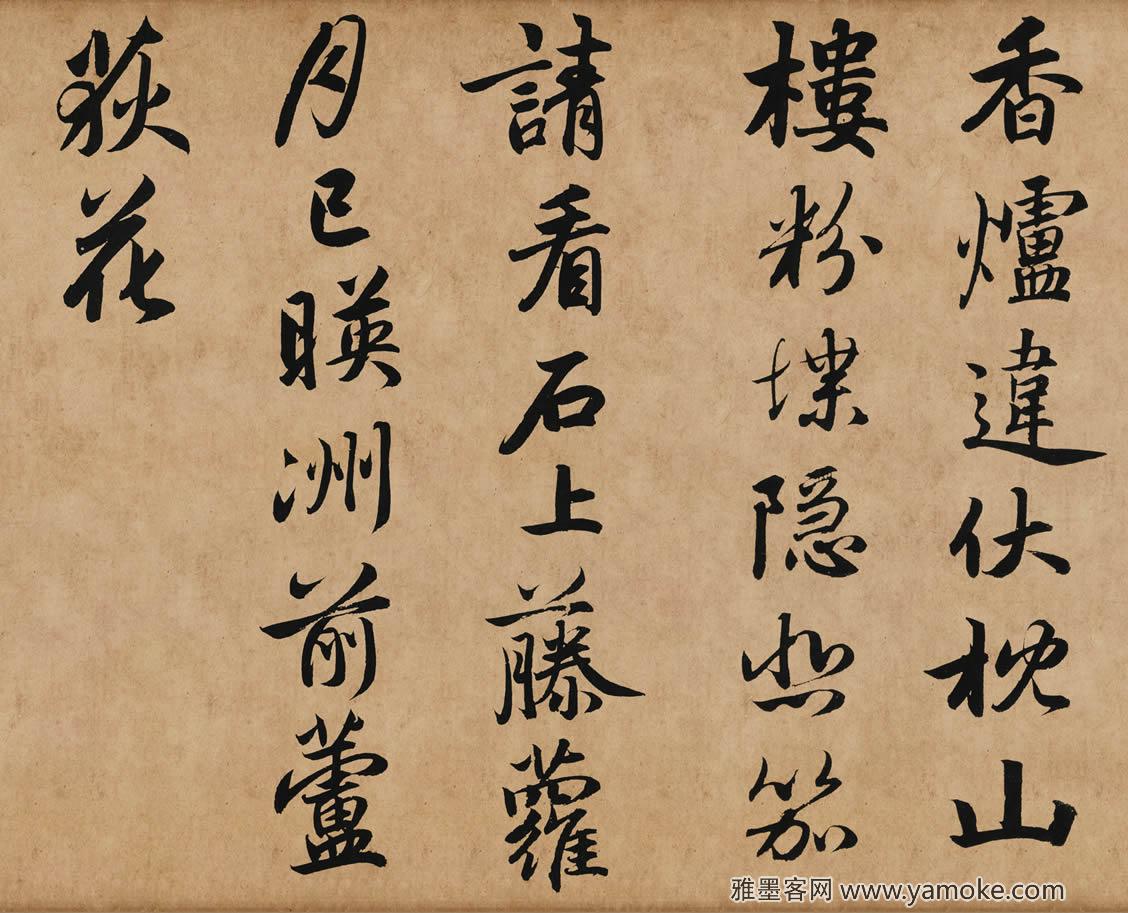 香爐違伏枕山
樓粉堞隐悲笳
請看石上藤蘿
月已暎洲前蘆
荻花
雅墨客网 www.yamoke.com